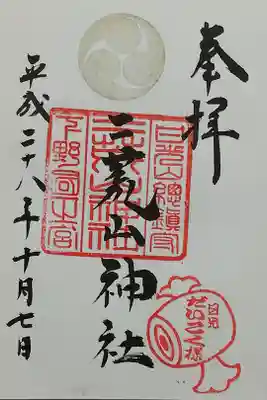 奉拝
日光山總鎮守
二荒山神社
下野國一之宮
日光
だいこく様
平成二十八年十月七日